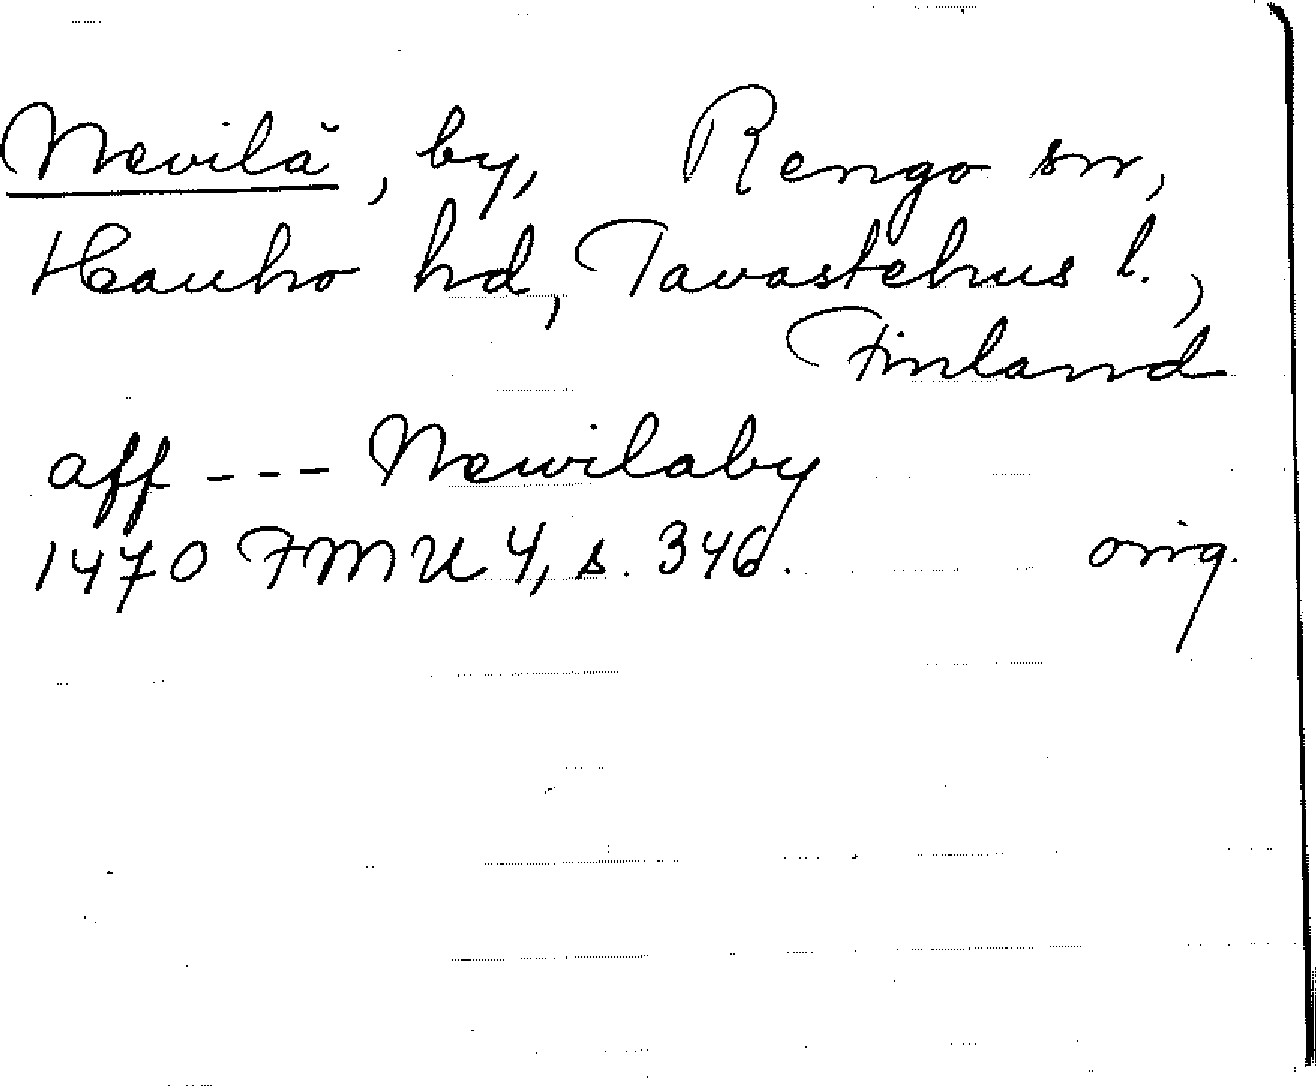 Nevilä, by, Rengo sn,
Hauho hd, Tavastehus l.,
Finland
aff --- Newilaby
1470 FMU 4, s. 346. orig.